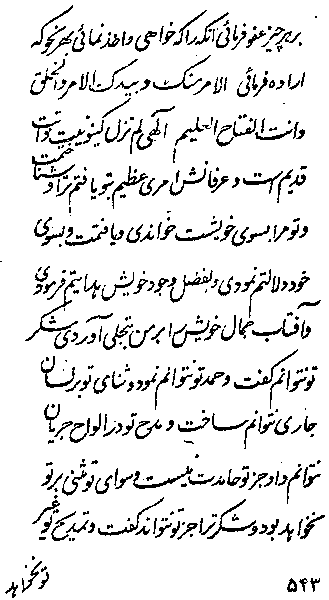 بر هر چیز عفو فرمائی آنکه را که خواهی و اخذ نمائی بهر نحو که
اراده فرمائی الامر منک و بیدک لک الامر و الخلق
و انت الفتاح العلیم الهی لم تزل کینونیت و ذات
قدیم است و عرفانش امری عظیم بتو یافتم ترا و شناختمت
و تو مرا بسوی خویشت خواندی و یافتمت و بسوی
خود دلالتم نمودی و بفضل وجود خویش هدایتم فرمودی
و آفتاب جمال خویش را بر من بتجلی آوردی شکر
تو نتوانم گفت و حمد تو نتوانم نمود و ثنای تو بر لسان
جاری نتوانم ساخت و مدح تو در الواح جریان
نتوانم داد جز تو حامدت نیست و سوای تو مثنی بر تو
نخواهد بود و شکر ترا جز تو نتواند گفت و تمدیح تو غیر
تو نخواهد
۵۴۳